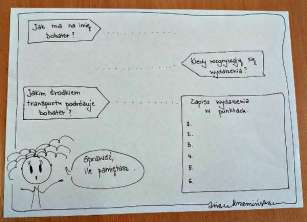 Jak ma na imię
bohater?
Kiedy rozgrywają się
wydarzenia?
Jakim środkiem
transportu podróżuje
bohater?
Zapisz wydarzenia
w punktach
1.
2.
3.
4.
5.
6.
Sprawdź,
ile pamiętasz